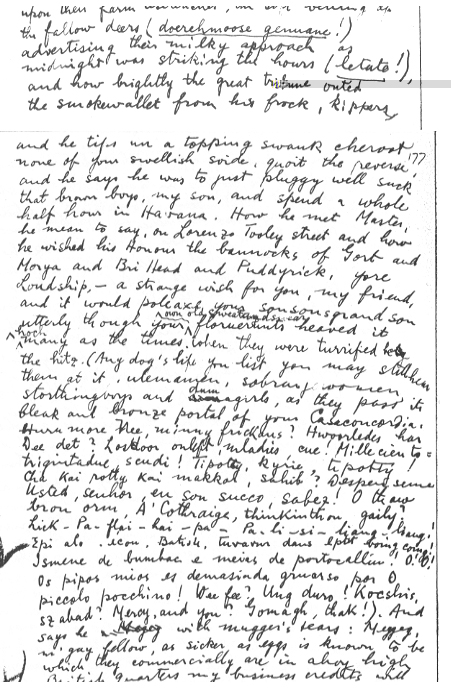 upon their farm
the fallow deers (doerehmoose genuane!)
advertising their milky approach as
midnight was striking the hours (letate!),
and how brightly the great tribune outed
the smokewallet from his frock, kippers,
and he tips un a topping swank cheroot,
none of your swellish soide, quoit the reverse,
and he says he was to just pluggy well suck
that brown boyo, my son, and spend a whole
half hour in Havana. How he met Master,
he mean to say, on Lorenzo Tooley street and how
he wished his Honour the bannocks of Gort and
Morya and Bri Head and Puddyrick, yore
Loudship, – a strange wish for you, my friend,
and it would poleaxe your sonsongrandson
utterly though your own old sweatandswear floruerunts heaved it
hoch many as the times. when they were turrified by
the hitz. (Any dog's life you list you may still hear
them at it, ulemamen, sobrany women,
storthingboys and dumagirls, as they pass its
bleak and bronze portal of your Casaconcordia.
Huru more Nee, minny frickans? Hwoorledes har
Dee det? Losdoor onleft mladies, cue! Millecien-to-
trigintadue scudi! Tipoty, kyrie, tipotty!
Cha kai rotty kai makkar, sahib? Despenseme
Usted, senhor, en son succo, sabez! O thaw
bron orm, A'Cothraige, thinkinthou gaily?
Lick-Pa-flai-hai-pa-Pa-li-si-liang-lang!
Epi alo, ecou, Batiste, tuvavnr dans Lptit boing going!
Ismene de bumbac e meias de portocallim! O! O!
Os pipos mios es demasiada gruarso por O
piccolo pocchino! Wee fee? Ung duro! Kocshis,
szabad? Mercy, and you? Gomagh, thak!). And
says he with mugger's tears:
m' gay fellow, as sicker as eggs is known to be
which they commercially are in ahoy high
British quarters my business credits will